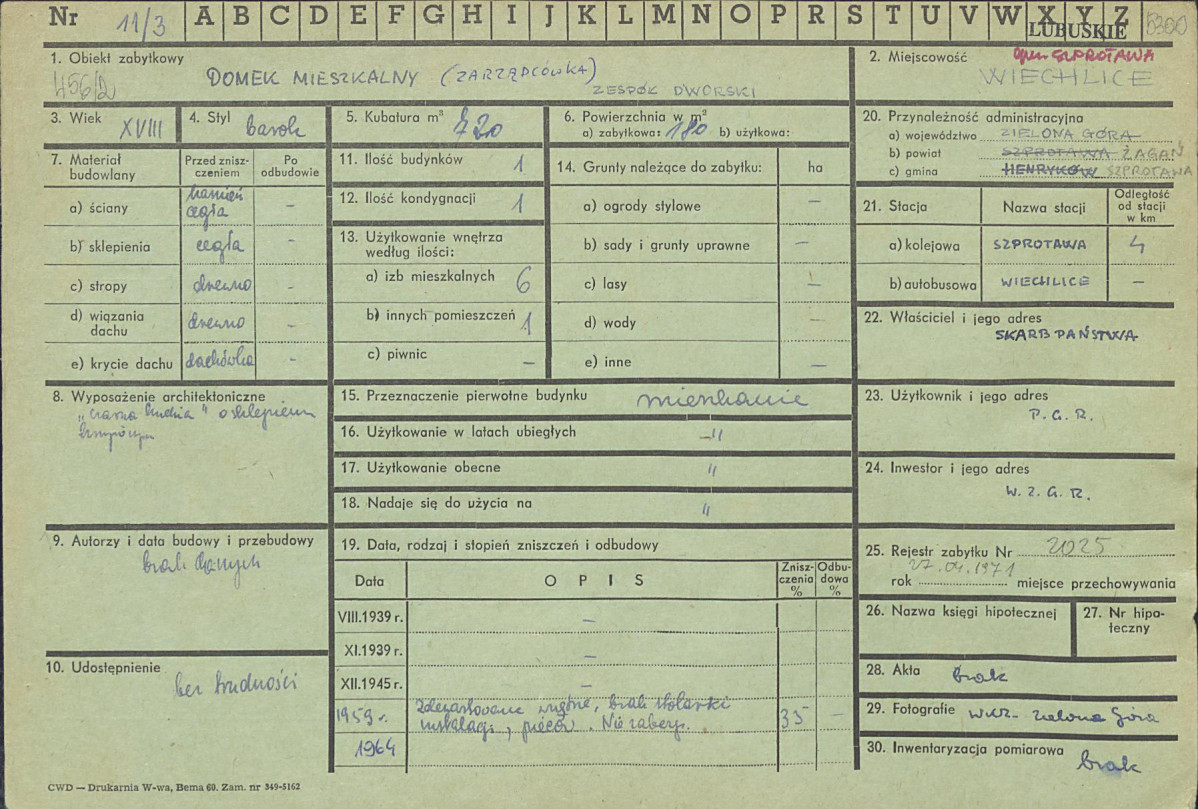 Nr 11/3 A B C D E F G H I J K L M N O P R S T U V W X Y Z 5300
LUBUSKIE
1. Obiekt zabytkowy
456/2 DOMEK MIESZKALNY (ZARZĄDCÓWKA)
ZESPÓŁ DWORSKI
2. Miejscowość gm SZPROTAWA
WIECHLICE
3. Wiek XVIII
4. Styl barok
5. Kubatura m³ 720
6. Powierzchnia w m²
a) zabytkowa: 180 b) użytkowa:
20. Przynależność administracyjna
a) województwo ZIELONA GÓRA
b) powiat SZPROTAWA ŻAGAŃ
c) gmina HENRYKÓW SZPROTAWA
7. Materiał budowlany
Przed zniszczeniem
Po odbudowie
a) ściany kamień cegła –
b) sklepienia cegła –
c) stropy drewno –
d) wiązania dachu drewno –
e) krycie dachu dachówka –
11. Ilość budynków 1
12. Ilość kondygnacji 1
13. Użytkowanie wnętrza
według ilości:
a) izb mieszkalnych 6
b) innych pomieszczeń 1
c) piwnic –
14. Grunty należące do zabytku: ha
a) ogrody stylowe –
b) sady i grunty uprawne –
c) lasy –
d) wody –
e) inne –
21. Stacja Nazwa stacji Odległość od stacji w km
a) kolejowa SZPROTAWA 4
b) autobusowa WIECHLICE –
22. Właściciel i jego adres
SKARB PAŃSTWA
8. Wyposażenie architektoniczne
„czarna kuchnia" o sklepieniu
15. Przeznaczenie pierwotne budynku mieszkanie
16. Użytkowanie w latach ubiegłych –"
17. Użytkowanie obecne "
18. Nadaje się do użycia na "
23. Użytkownik i jego adres
P.G.R.
24. Inwestor i jego adres
W.Z.G.R.
9. Autorzy i data budowy i przebudowy
brak danych
10. Udostępnienie
bez trudności
19. Data, rodzaj i stopień zniszczeń i odbudowy
Data OPIS Zniszczenia % Odbudowa %
VIII.1939 r. –
XI.1939 r. –
XII.1945 r. –
1959 r. Zdewastowane wnętrze, brak stolarki
instalacji, pieców. Nie zabezp. 35 –
1964
25. Rejestr zabytku Nr 2025
27.04.1971
rok miejsce przechowywania
26. Nazwa księgi hipotecznej
27. Nr hipoteczny
28. Akta brak
29. Fotografie WKZ- Zielona Góra
30. Inwentaryzacja pomiarowa
brak
CWD — Drukarnia W-wa, Bema 60. Zam. nr 349-5162